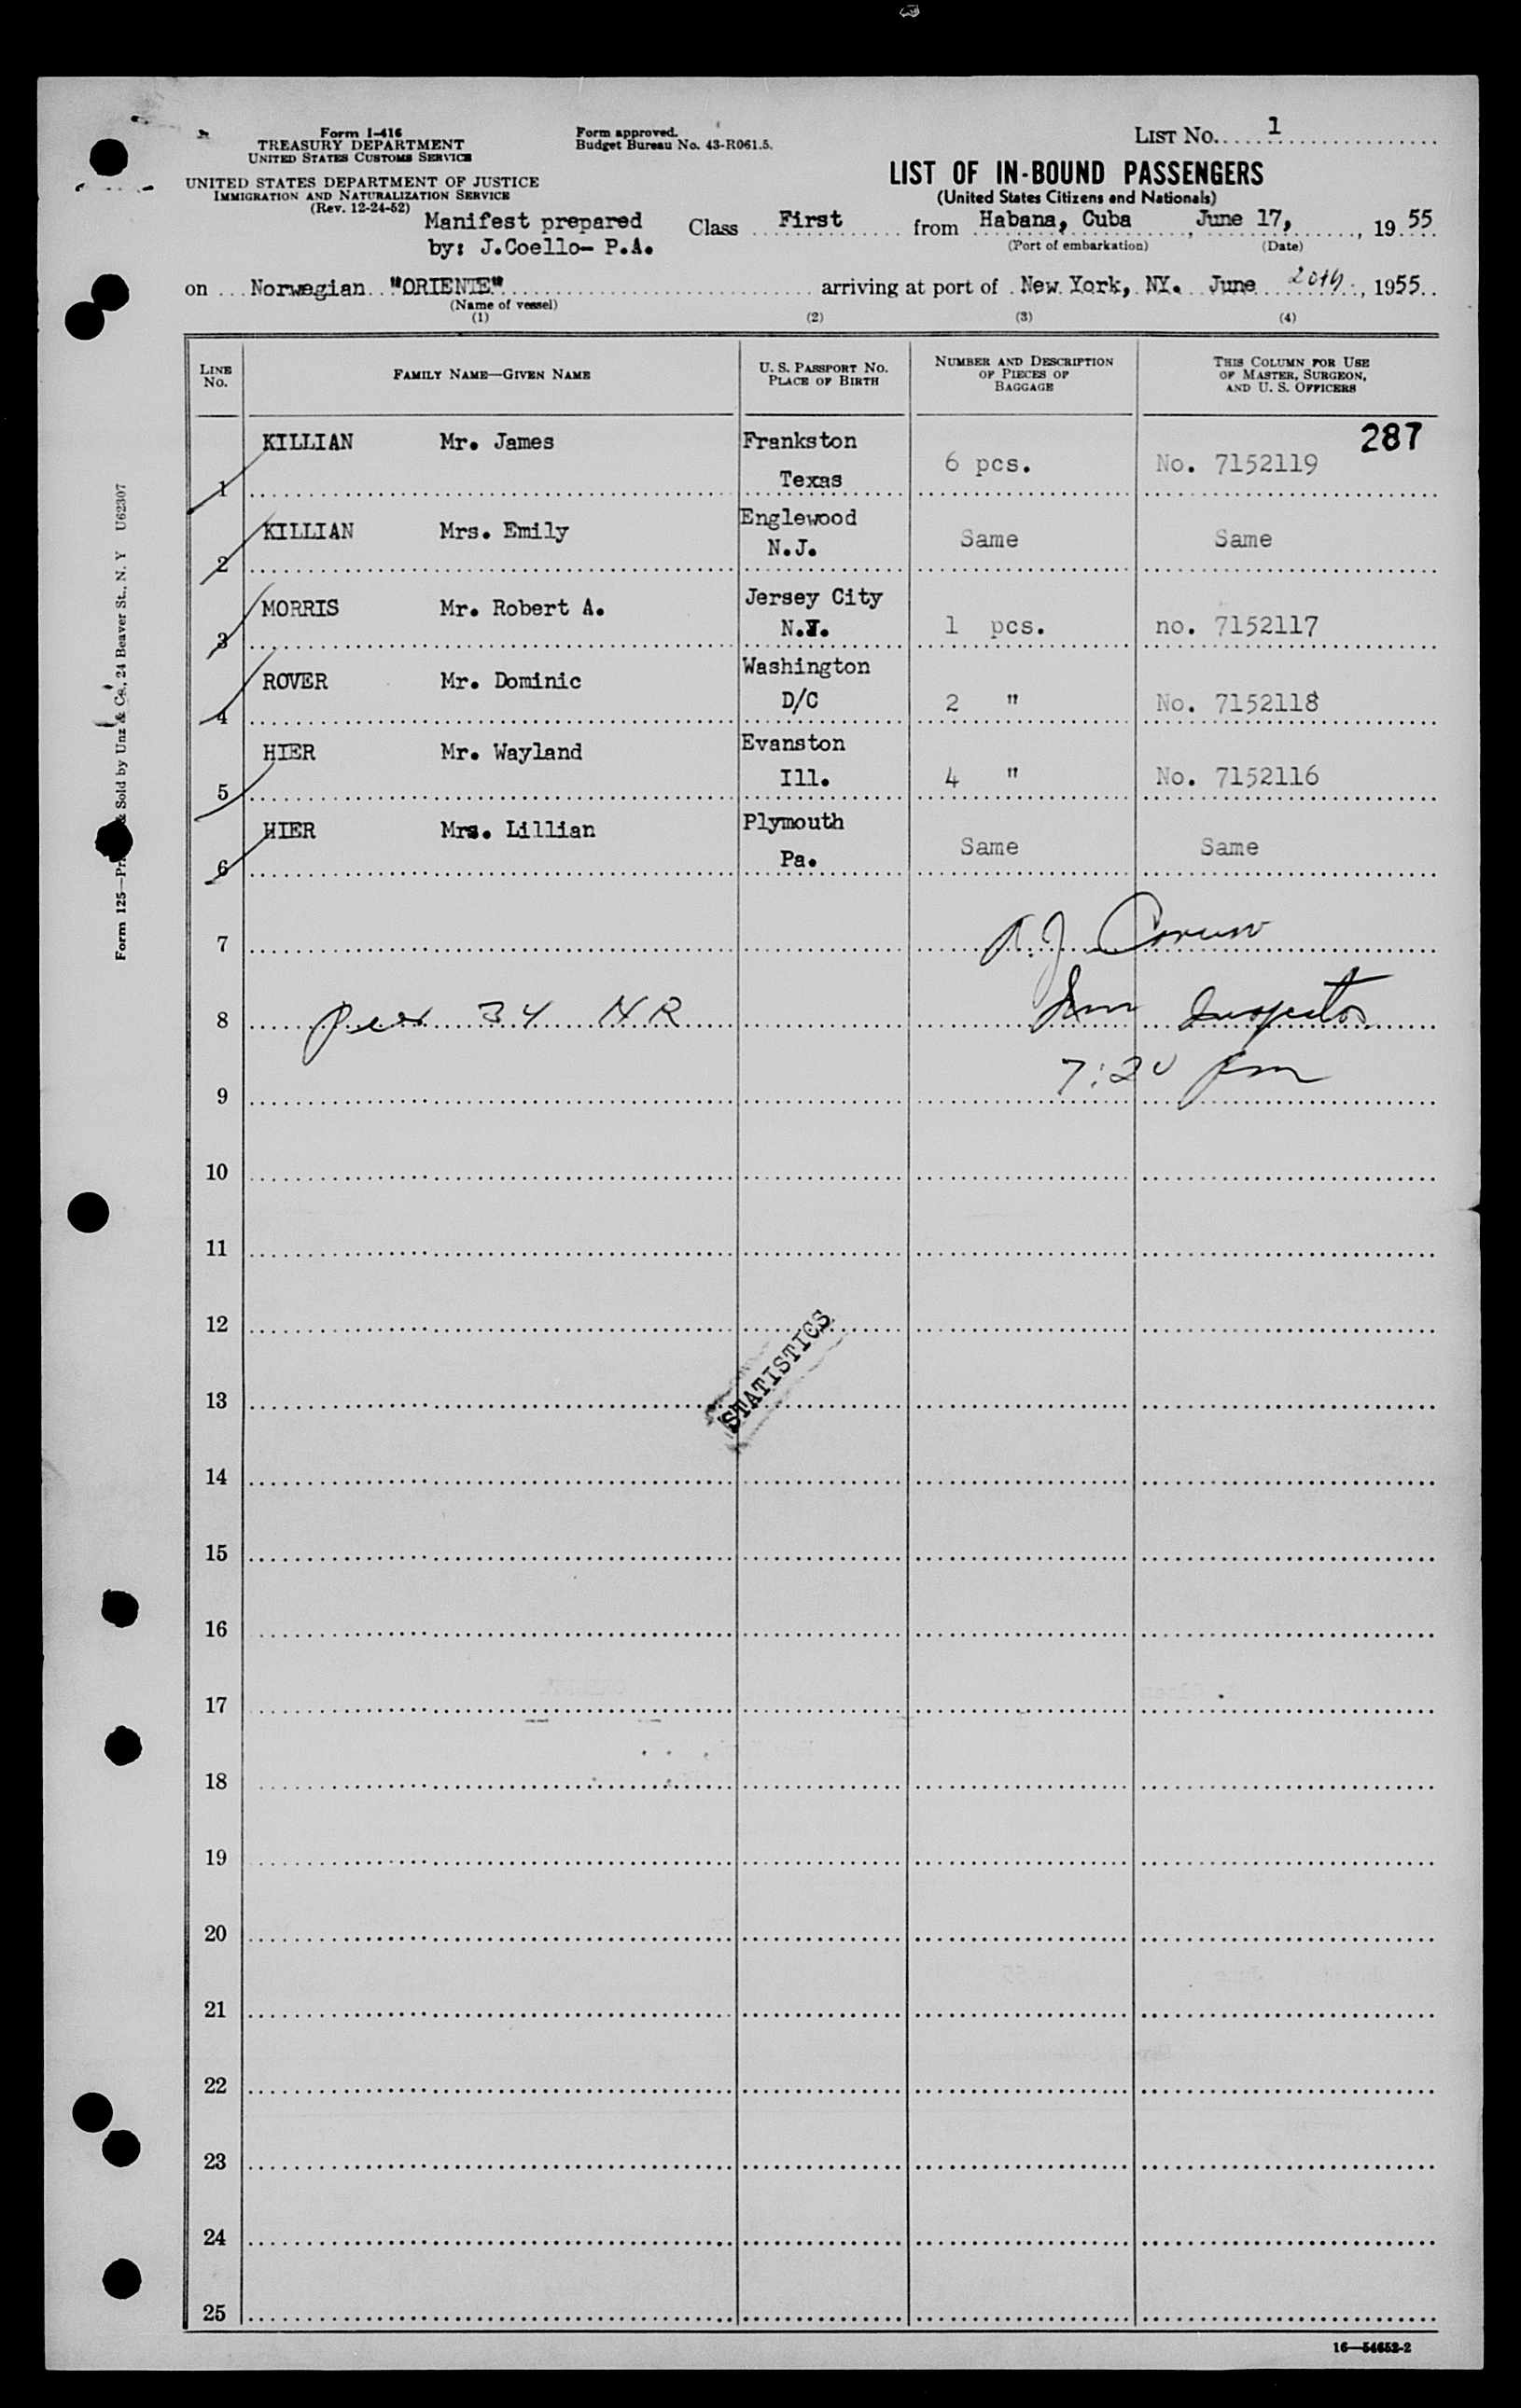 Form I-416
TREASURY DEPARTMENT
UNITED STATES CUSTOMS SERVICE
UNITED STATES DEPARTMENT OF JUSTICE
IMMIGRATION AND NATURALIZATION SERVICE
(Rev. 12-24-52)
Form approved.
Budget Bureau No. 43-R061.5.
LIST No. 1
LIST OF IN-BOUND PASSENGERS
(United States Citizens and Nationals)
Manifest prepared
by: J.Coello- P.A.
Class First from Habana, Cuba, June 17, , 19 55
(Port of embarkation) (Date)
on Norwegian "ORIENTE" arriving at port of New York, NY. June 20th, 1955
(Name of vessel)
(1) (2) (3) (4)
LINE No. FAMILY NAME—GIVEN NAME U. S. PASSPORT No. PLACE OF BIRTH NUMBER AND DESCRIPTION OF PIECES OF BAGGAGE THIS COLUMN FOR USE OF MASTER, SURGEON, AND U. S. OFFICERS
287
1 KILLIAN Mr. James Frankston Texas 6 pcs. No. 7152119
2 KILLIAN Mrs. Emily Englewood N.J. Same Same
3 MORRIS Mr. Robert A. Jersey City N.J. 1 pcs. no. 7152117
4 ROVER Mr. Dominic Washington D/C 2 " No. 7152118
5 HIER Mr. Wayland Evanston Ill. 4 " No. 7152116
6 HIER Mrs. Lillian Plymouth Pa. Same Same
7
8 Pier 34 NR Imm Inspector
7:20 pm
9
10
11
12
STATISTICS
13
14
15
16
17
18
19
20
21
22
23
24
25
16—54652-2
Form 125—Pr & Sold by Unz & Co., 24 Beaver St., N. Y U62307